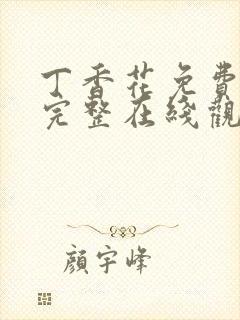 丁香花免費
完整在綫觀
顔宇峰